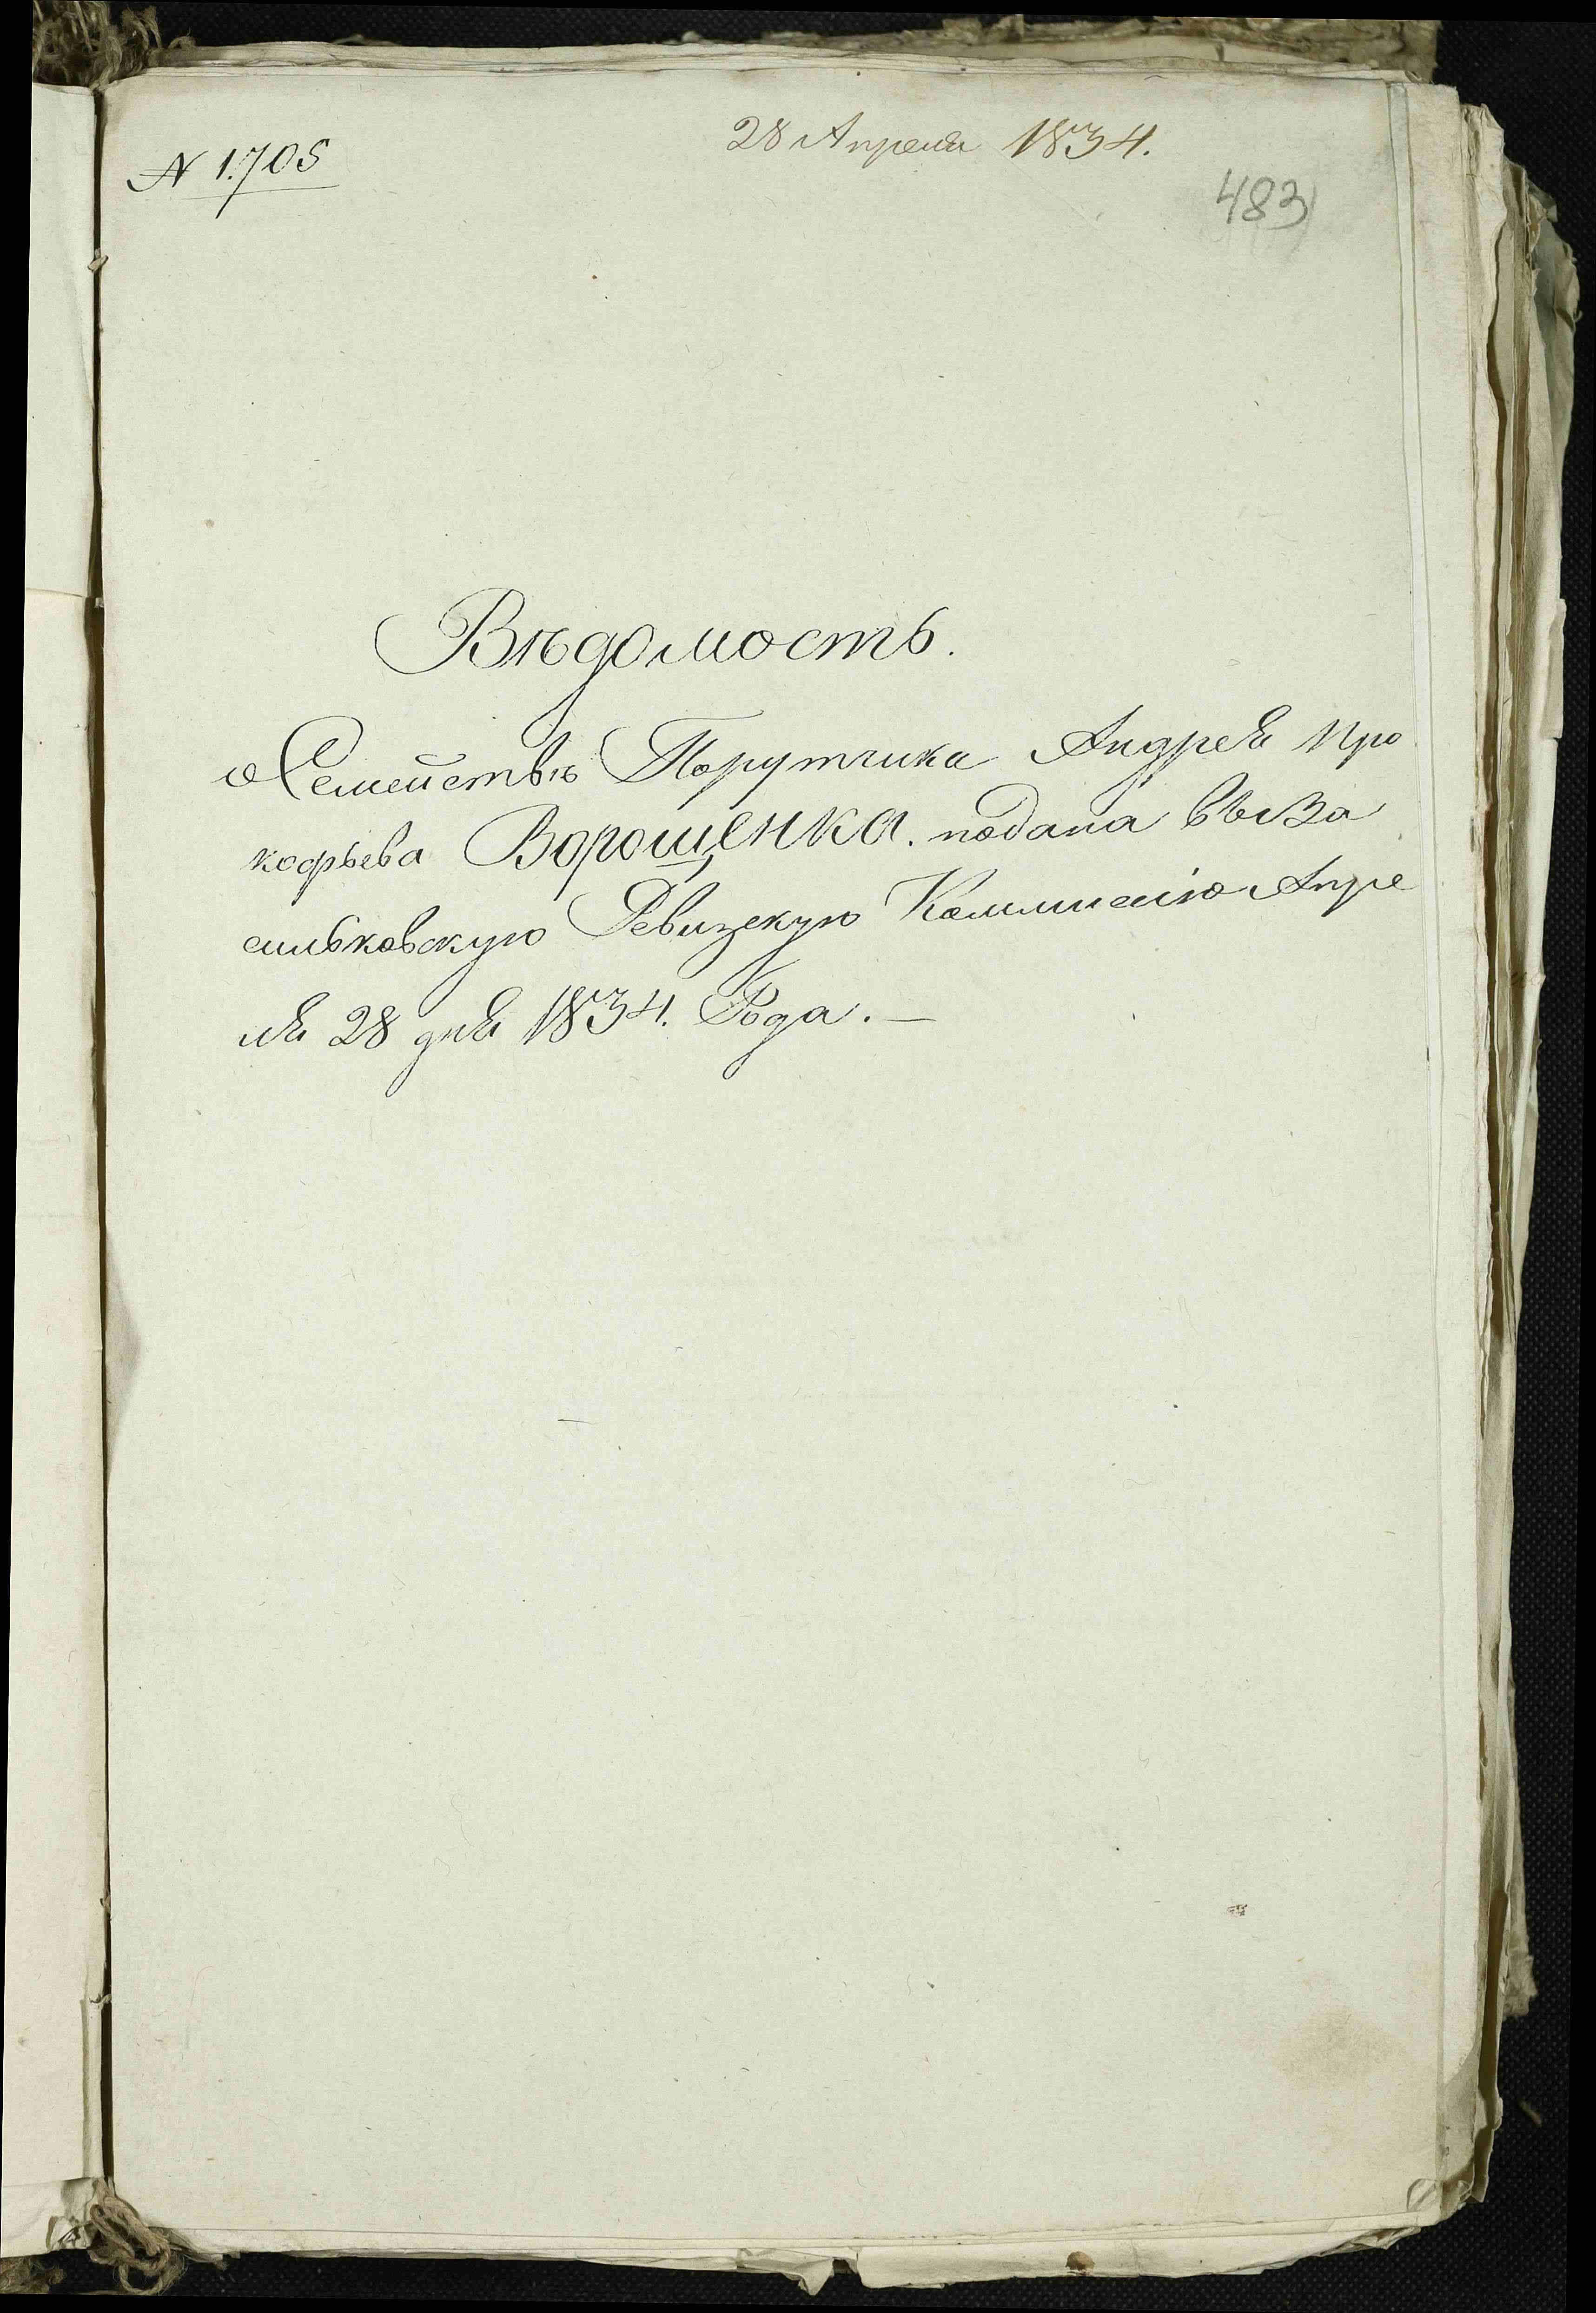 N 1.705
28 Апреля 1834.
483
Вѣдомость.
о Семействѣ Порутчика Андрея Про
кофьева Ворощенка. подана въ Ва
сильковскую Ревизскую Коммисию Апре
ля 28 дня 1834. Года. —